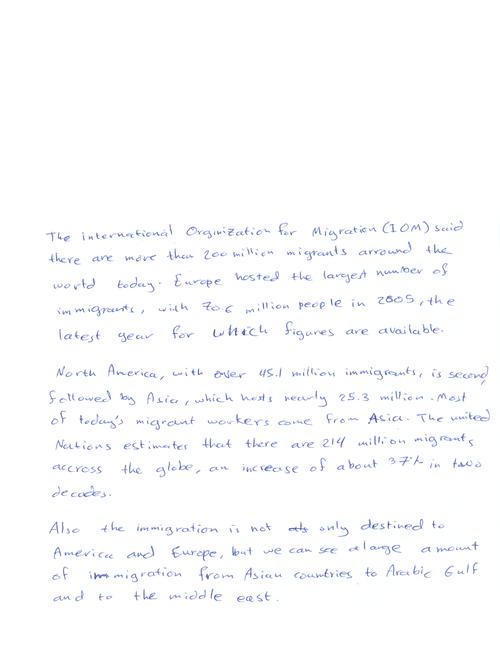 The international Orginization for Migration (IOM) said
there are more than 200 million migrants arround the
world today. Europe hosted the largest number of
immigrants, with 70.6 million people in 2005, the
latest year for which figures are available.
North America, with over 45.1 million immigrants, is second,
followed by Asia, which hosts nearly 25.3 million. Most
of today's migrant workers come from Asia. The united
Nations estimates that there are 214 million migrants
accross the globe, an increase of about 37% in two
decades.
Also the immigration is not only destined to
America and Europe, but we can see a large amount
of immigration from Asian countries to Arabic Gulf
and to the middle east.